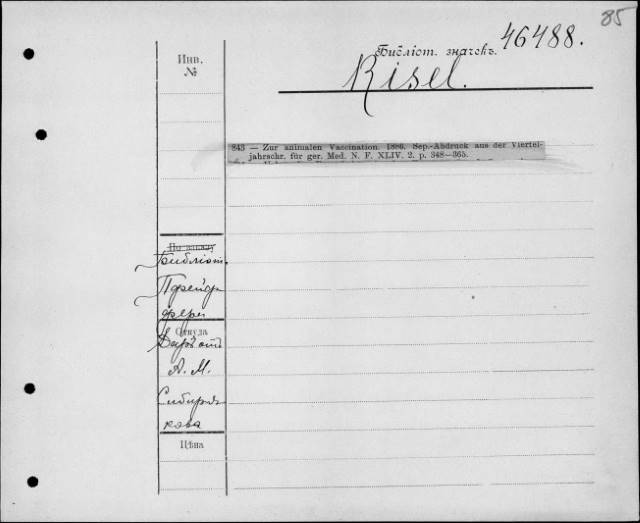 85
Инв.
№
Библіот. значекъ. 46488.
Risel.
343 — Zur animalen Vaccination. 1886. Sep.-Abdruck aus der Viertel-
jahrschr. für ger. Med. N. F. XLIV. 2. p. 348—365.
По заказу
Библіот.
Пфейф
фера
Откуда
Даръ отъ
А. М.
Сибиря
кова
Цѣна